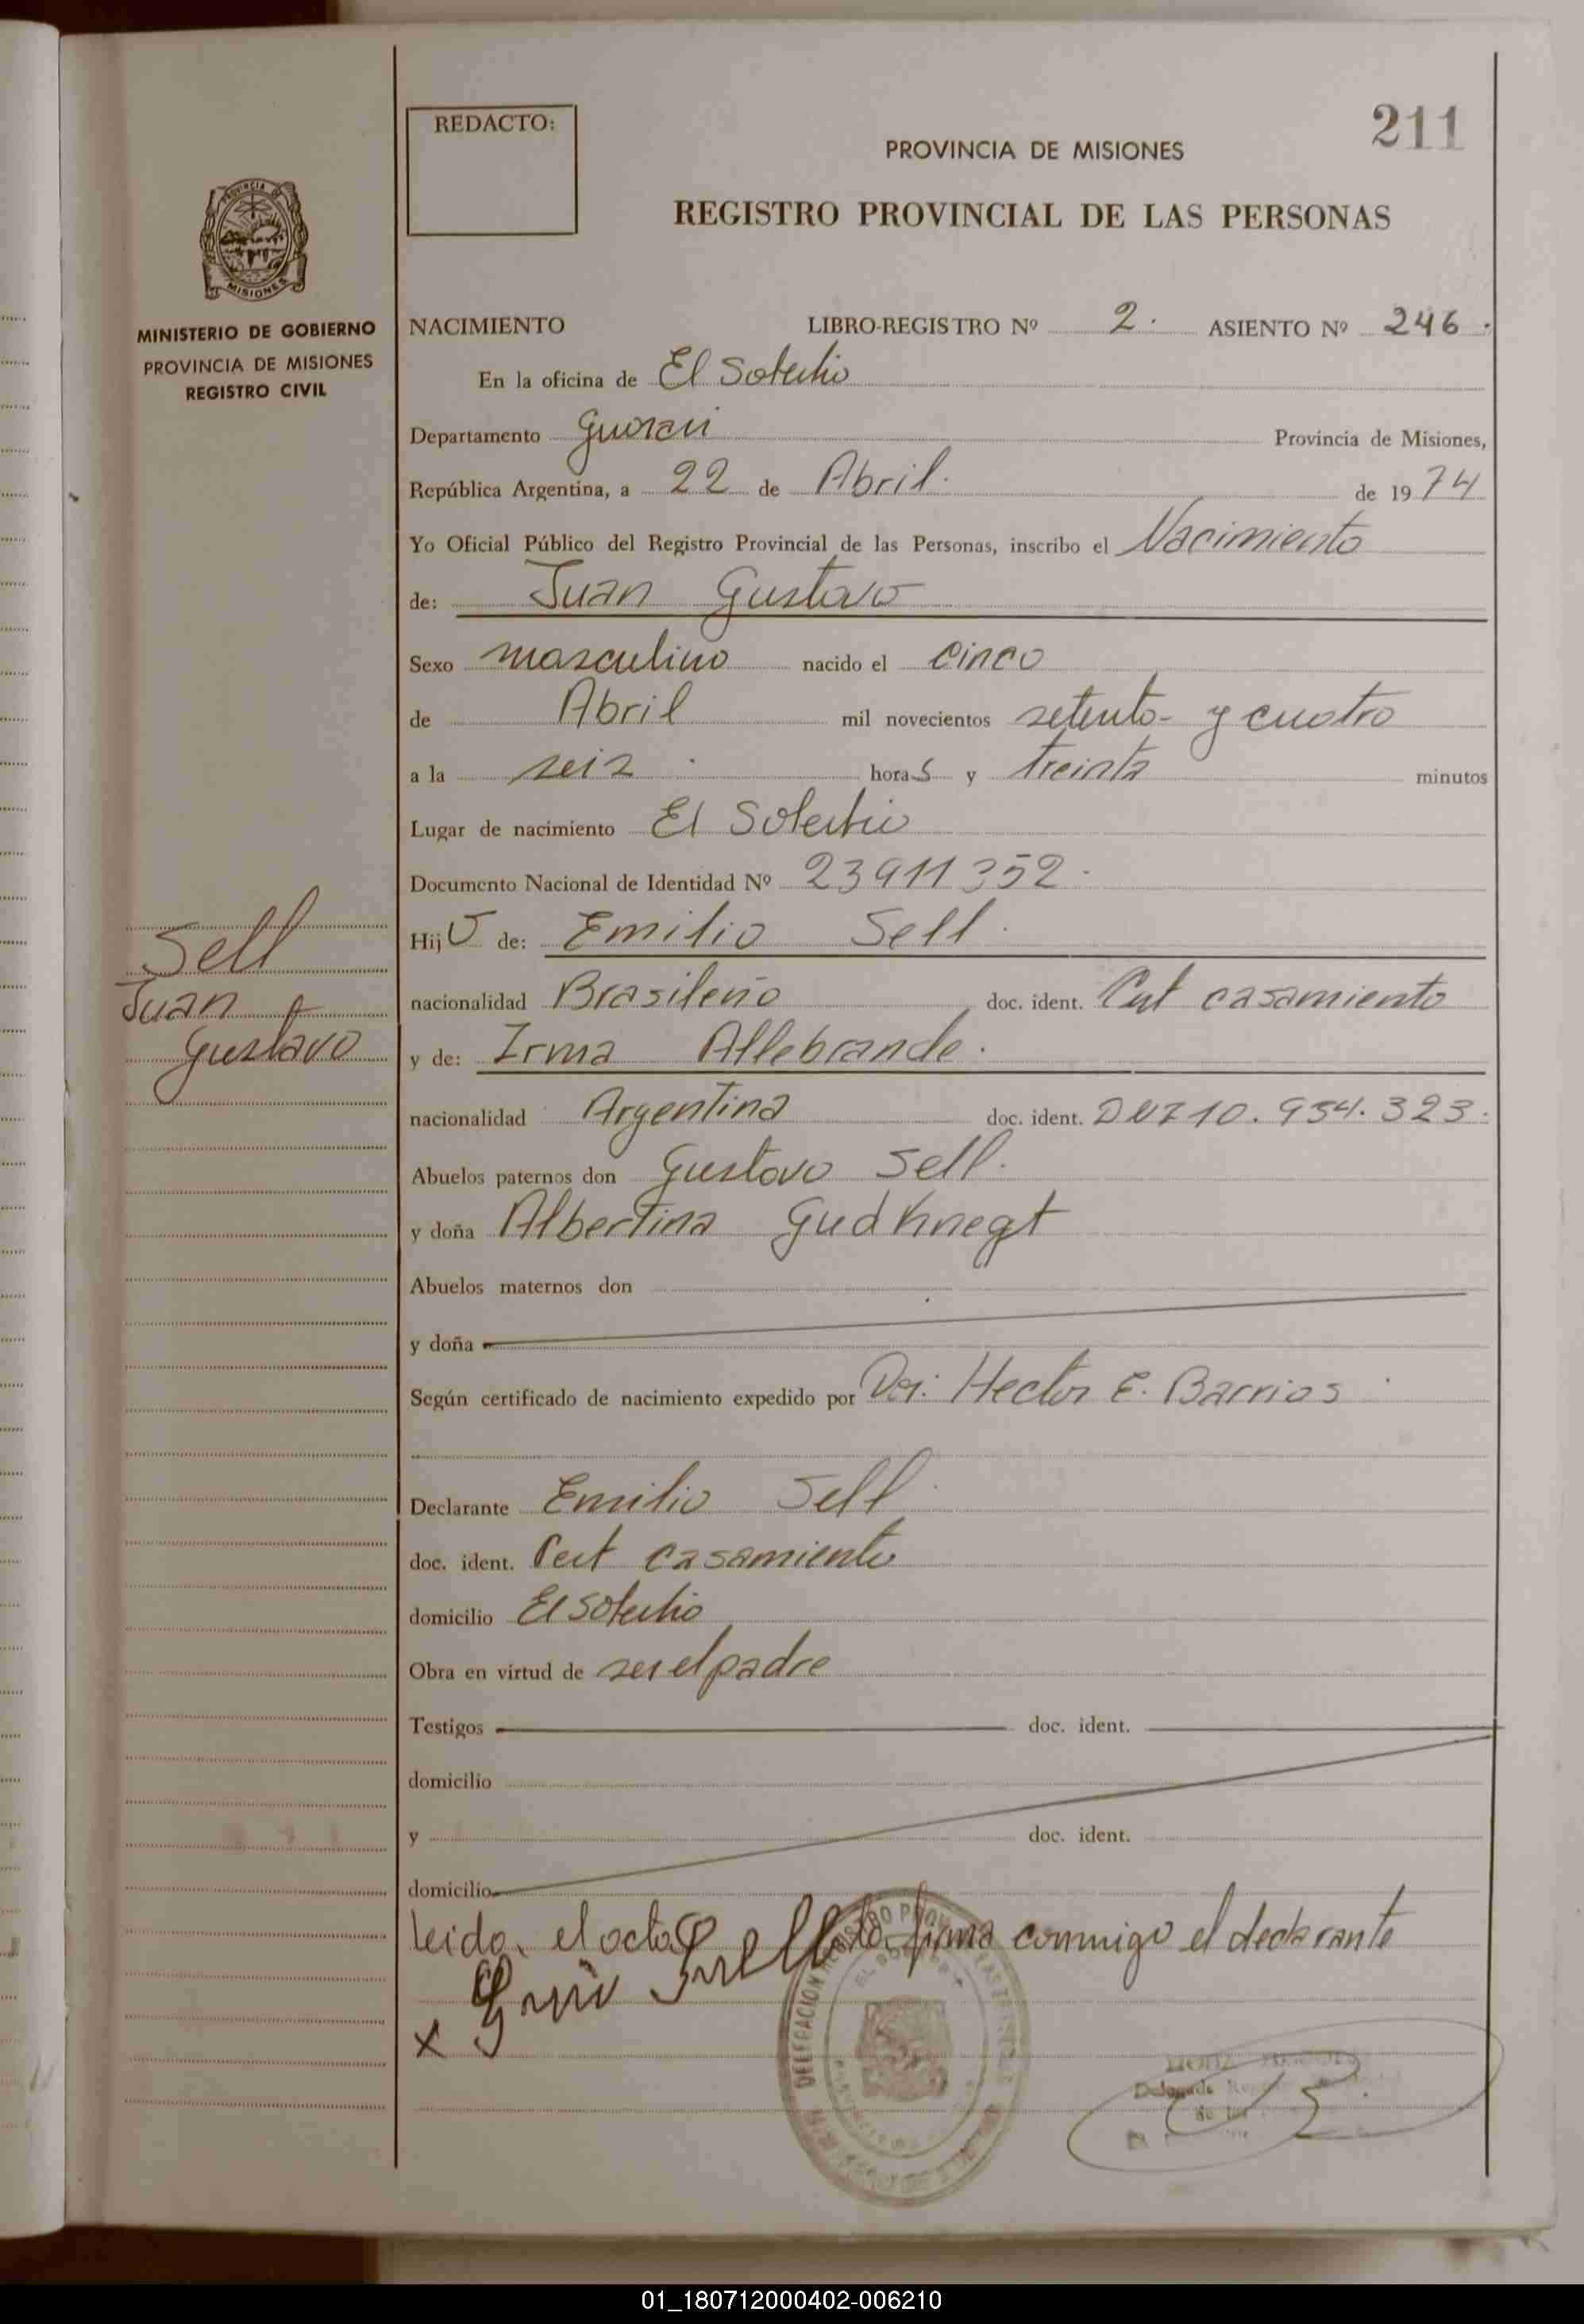 REDACTO:
211
PROVINCIA DE MISIONES
REGISTRO PROVINCIAL DE LAS PERSONAS
PROVINCIA DE
MISIONES
MINISTERIO DE GOBIERNO
PROVINCIA DE MISIONES
REGISTRO CIVIL
NACIMIENTO LIBRO-REGISTRO Nº 2. ASIENTO Nº 246.
En la oficina de El Soberbio
Departamento Guarani Provincia de Misiones,
República Argentina, a 22 de Abril. de 1974
Yo Oficial Público del Registro Provincial de las Personas, inscribo el Nacimiento
de: Juan Gustavo
Sexo masculino nacido el cinco
de Abril mil novecientos setenta y cuatro
a la seis horas y treinta minutos
Lugar de nacimiento El Soberbio
Documento Nacional de Identidad Nº 23911352.
Hijo de: Emilio Sell.
Sell
Juan
Gustavo
nacionalidad Brasileño doc. ident. Cert casamiento
y de: Irma Allebrande.
nacionalidad Argentina doc. ident. DNI 10.954.323.
Abuelos paternos don Gustavo Sell.
y doña Albertina Gudknegt
Abuelos maternos don
y doña
Según certificado de nacimiento expedido por Hector E. Barrios
Declarante Emilio Sell
doc. ident. Cert casamiento
domicilio El Soberbio
Obra en virtud de ser el padre
Testigos doc. ident.
domicilio
y doc. ident.
domicilio
Leida el acta firma conmigo el declarante
x
Delegado
01_180712000402-006210